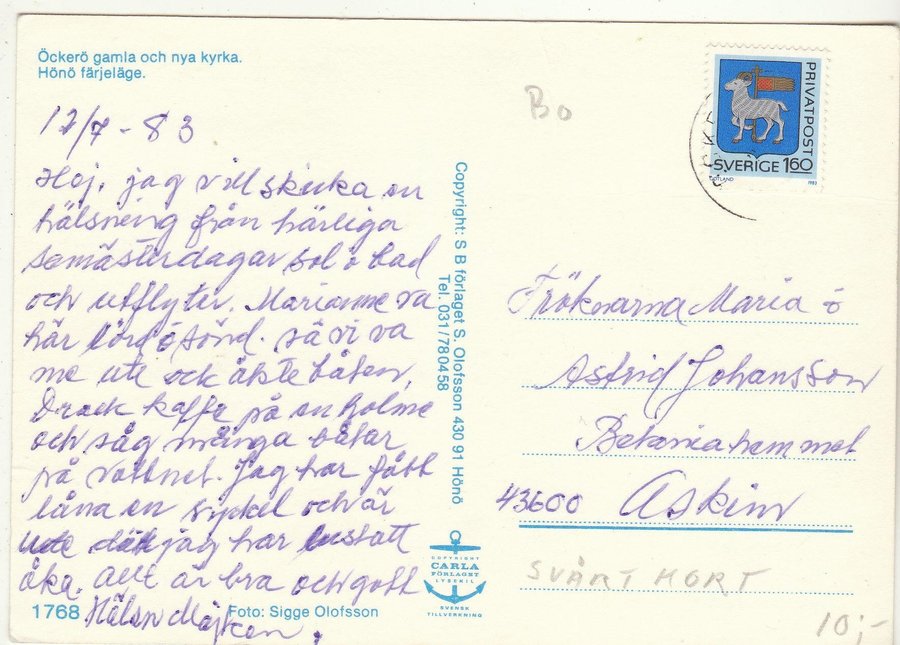 Öckerö gamla och nya kyrka.
Hönö färjeläge.
12/7 - 83
Hej, jag vill skicka en
hälsning från härliga
semästerdagar sol o bad
och utflyter. Marianne va
här lörd o sönd. så vi va
me ute och åkte båten,
Drack kaffe på en holme
och såg många båtar
på vattnet. Jag har fått
låna en sykel och är
ute där jag har lust att
åka. Allt är bra och gott
Hälsn Majken.
1768
Foto: Sigge Olofsson
Copyright: S B förlaget S. Olofsson 430 91 Hönö
Tel. 031/780458
COPYRIGHT
CARLA
FÖRLAGET
LYSEKIL
SVENSK
TILLVERKNING
Bo
PRIVATPOST
SVERIGE 160
GOTLAND 1983
Fröknarna Maria o
Astrid Johansson
Betaniahemmet
43600 Askim
SVÅRT MORT
10;-